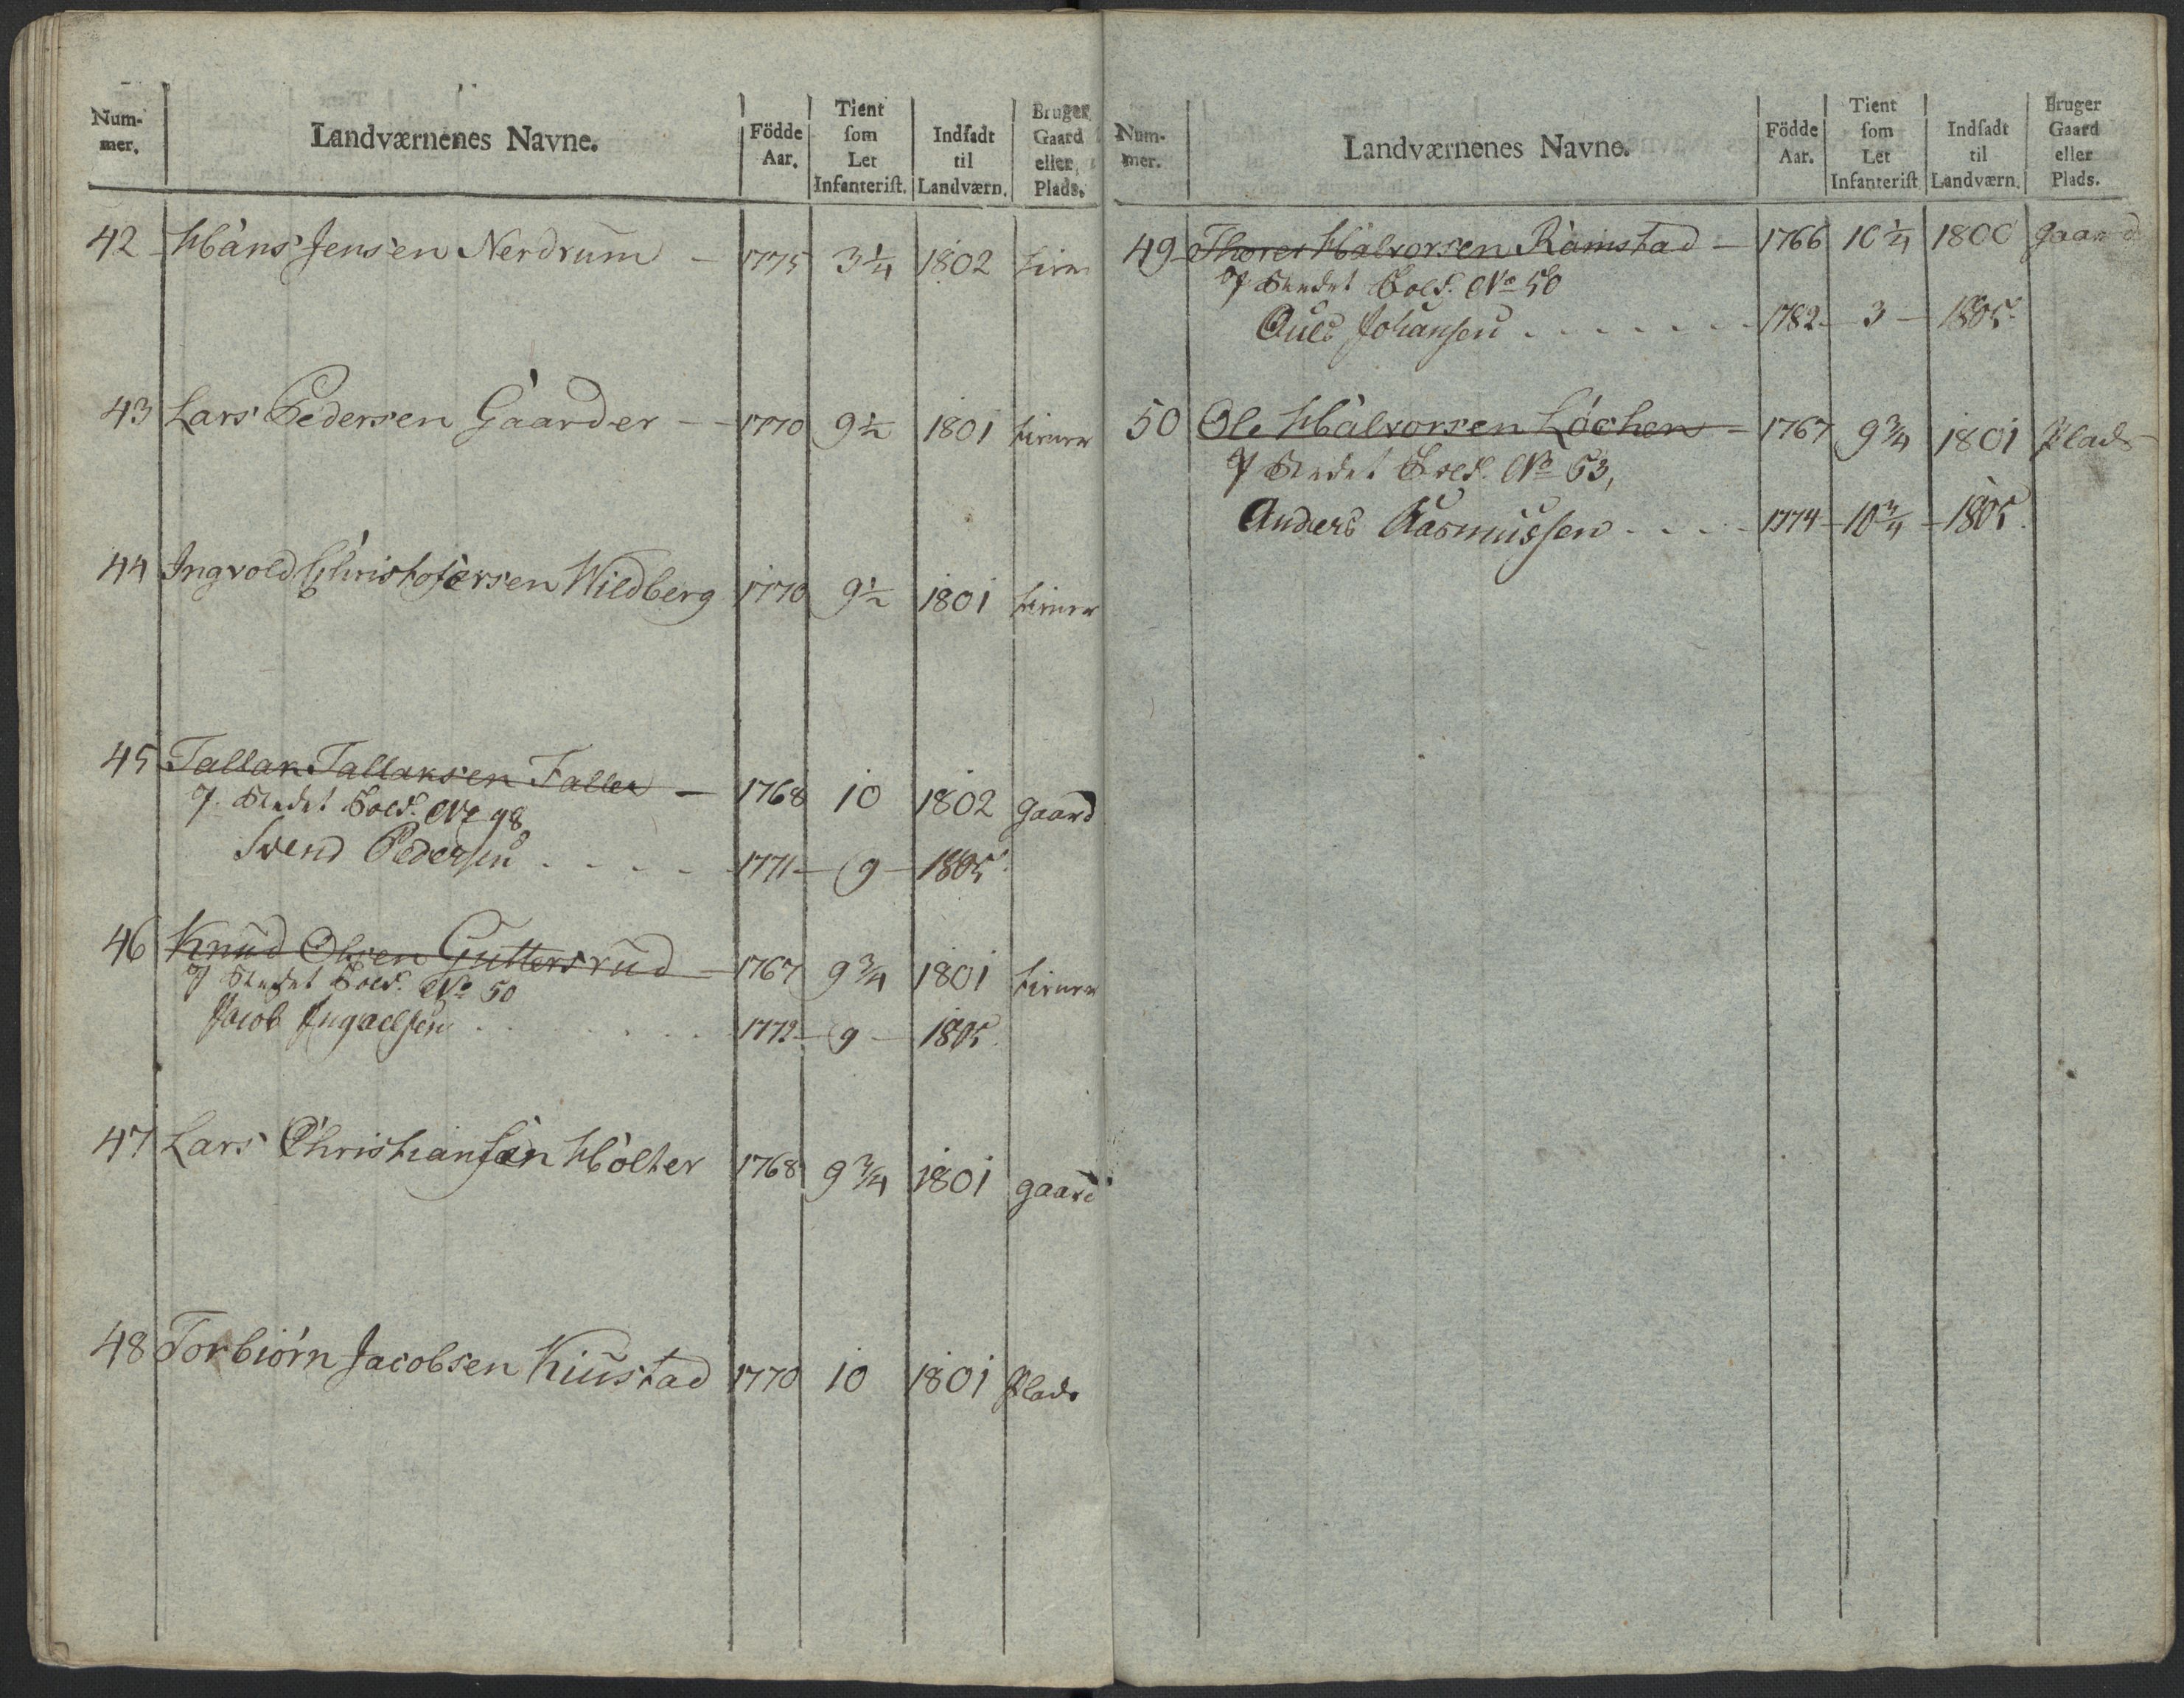 Num- mer. Landværnenes Navne. Födde Aar. Tient som Let Infanterist. Indsadt til Landværn. Bruger Gaard eller Plads.
42 Hans Jensen Nerdrum – 1775 3¼ 1802
43 Lars Pedersen Gaarder – – 1770 9½ 1801
44 Ingvold Christofersen Wildberg 1770 9½ 1801
45 Tallak Tallaksen Faller – 1768 10 1802 gaard
Sold. No 98
Svend Pedersen . . . . 1771 – 9 – 1805.
46 Knud Olsen Guttersrud – 1767 9¾ 1801
Sold. No 50
Jacob . . . . . 1772 – 9 – 1805.
47 Lars Christiansen Holter 1768 9¾ 1801 gaard
48 Torbiörn Jacobsen Kiustad 1770 10 1801 Plads
Num- mer. Landværnenes Navne. Födde Aar. Tient som Let Infanterist Indsadt til Landværn. Bruger Gaard eller Plads.
49 Thorer Halvorsen Ramstad – 1766 10¼ 1800 gaard
Sold. No 50
Johansen . . . . . . . 1782 – 3 – 1805.
50 Ole Halvorsen Löchen – 1767 9¾ 1801 Plads
Sold. No 53,
Anders Rasmussen . . . . 1774 – 10¾ – 1805.